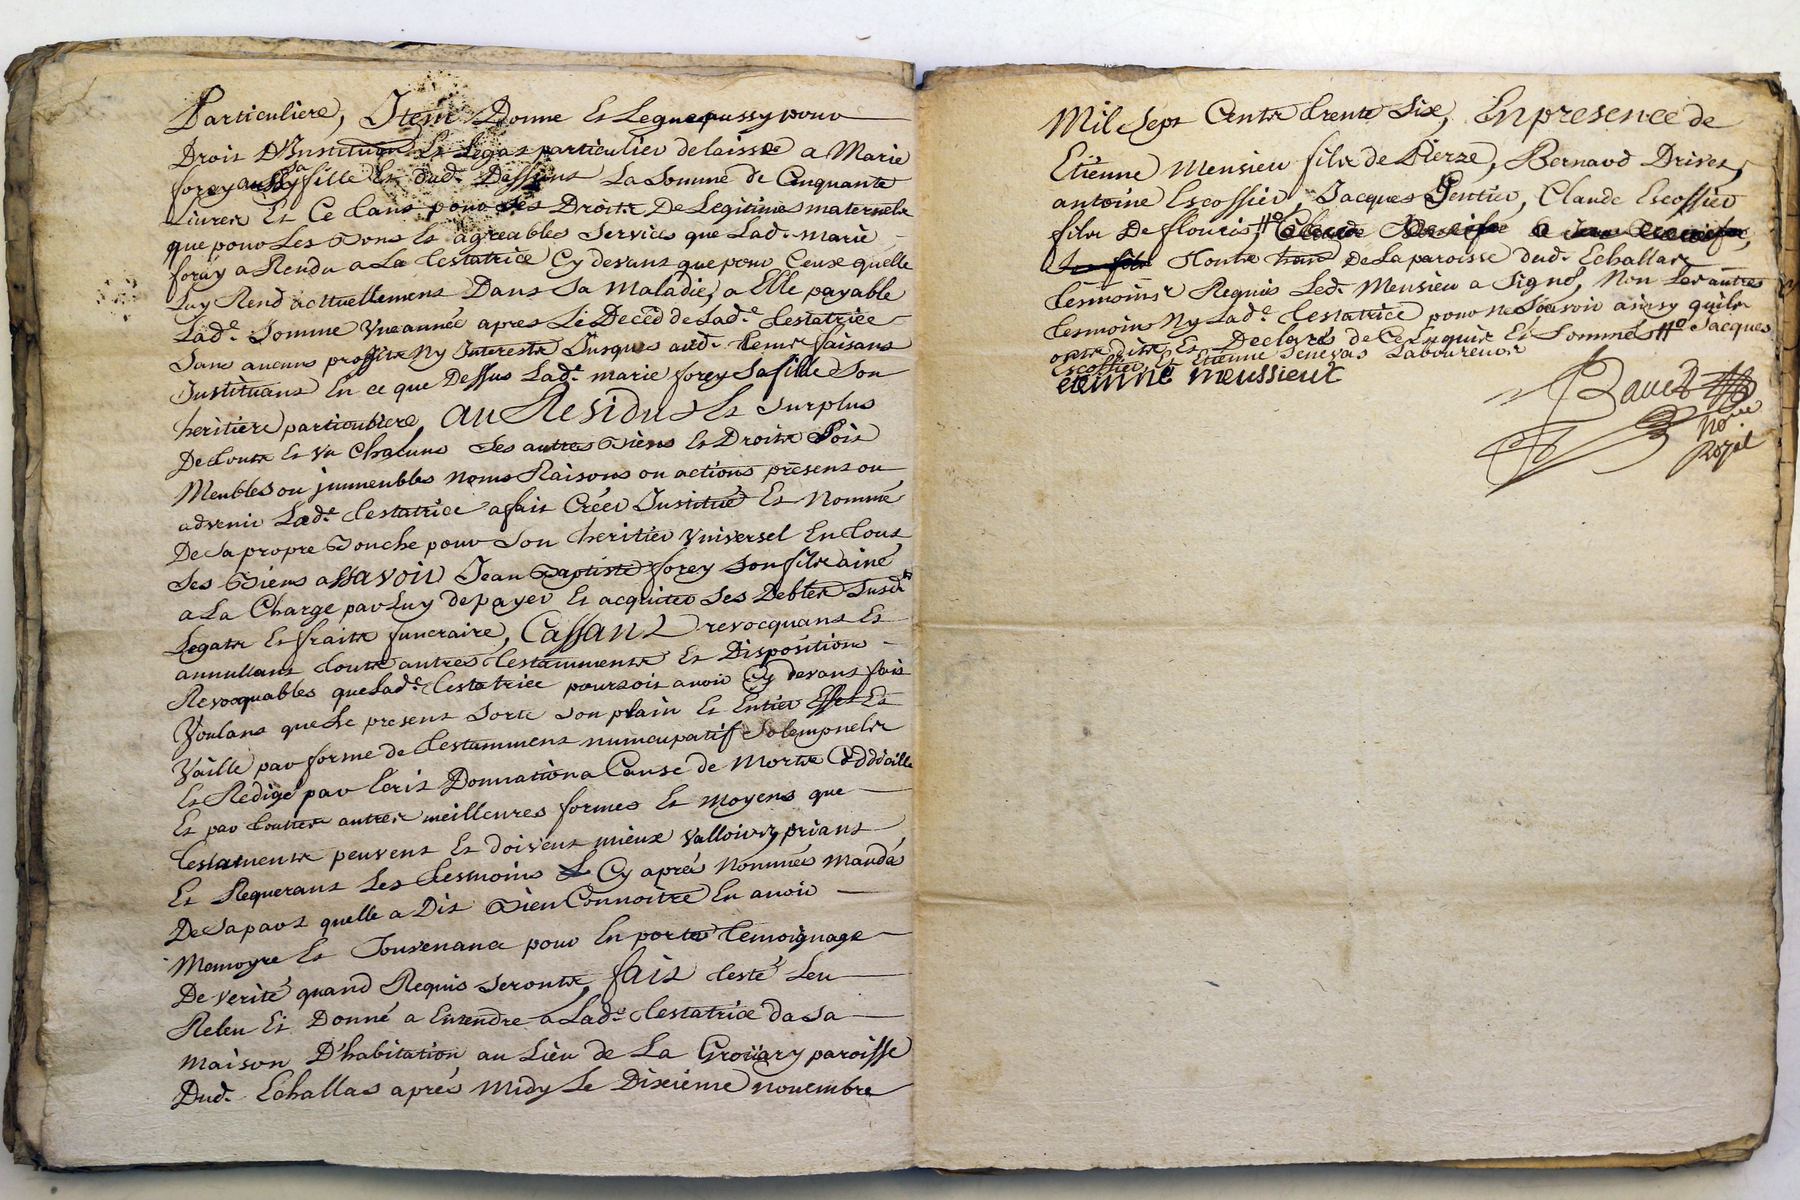 Particuliere, Item Donne Et Legue aussy pour
Droit D'Institution Et Legat particulier delaisse a Marie
forey aussy sa fille Et dud. Deffunt La Somme de Cinquante
Livres Et Ce tant pour ses Droits De Legitimes maternels
que pour Les Bons Et agreables Services que Lad. marie
forey a Rendu a La testatrice Cy devant que pour Ceux quelle
Luy Rend actuellement Dans Sa Maladie, a Elle payable
Lad.e Somme Vne année apres Le Decéd de Lad.e testatrice
Sans aucuns proffits Ny Interests Jusques aud. temps faisant
Instituant En ce que Dessus Lad.e marie forey Sa fille Son
heritiere particuliere, au Residu Et Surplus
De touts Et Vn Chacuns Ses autres Biens Et Droits Soit
Meubles ou jmmeubles noms Raisons ou actions présent ou
advenir Lad.e testatrice a fait Créér Institué Et Nommé
De Sa propre Bouche pour Son heritier Vniversel En tous
Ses Biens assavoir Jean Baptiste forey Son fils ainé
a La Charge par Luy de payer Et acquiter Ses Debtes Susd.ts
Legats Et fraits funeraire, Cassant revocquant Et
annullant touts autres testamments Et Disposition
Revocquables que Lad.e testatrice pourroit avoir Cy devant fait
Voulant que Le present Sorte Son plain Et Entier Effet Et
Vaille par forme de testamment nuncupatif Solempnels
Et Redigé par Ecrit Donnation a Cause de Morts
Et par touttes autres meilleures formes Et moyens que
testaments peuvent Et doivent mieux Valloir, priant
Et Requerant Les tesmoins Cy aprés Nommés mandés
De Sa part quelle a Dit Bien Connoitre En avoir
Memoyre Et Souvenance pour En porter temoignage
De verité quand Requis Seronts, fait testé Leu
Releu Et Donné a Entendre a Lad.e testatrice da Sa
maison D'habitation au Lieu de La Groüary paroisse
Dud. Echallas aprés Midy Le Dixiéme novembre
Mil Sept Cents trente Six, En presence de
Etienne Mensieu fils de Pierre, Bernard Drivet,
antoine Escoffier, Jacques Gentier, Claude Escoffier
fils De flouris,
touts De La paroisse dud. Echallas
tesmoins Requis Led. Mensieu a Signé, Non Les autres
tesmoins Ny Lad.e testatrice pour ne Scavoir ainsy quils
onts dits Et Declarés de Ce Enquis Et Sommés Jacques
Escoffier, Et Etienne Senevas Laboureurs
etienne meussieux
Bavet
No.re
Royal